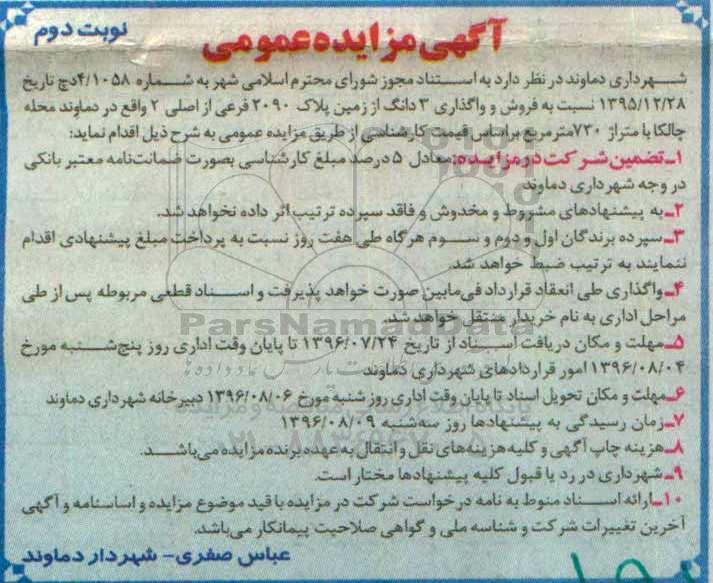 آگهی مزایده عمومی
نوبت دوم
شهرداری دماوند در نظر دارد به استناد مجوز شورای محترم اسلامی شهر به شماره ۴/۱۰۵۸دچ تاریخ
۱۳۹۵/۱۲/۲۸ نسبت به فروش و واگذاری ۳ دانگ از زمین پلاک ۲۰۹۰ فرعی از اصلی ۲ واقع در دماوند محله
چالکا با متراژ ۷۳۰ متر مربع براساس قیمت کارشناسی از طریق مزایده عمومی به شرح ذیل اقدام نماید:
۱ـ تضمین شرکت در مزایده: معادل ۵ درصد مبلغ کارشناسی بصورت ضمانت‌نامه معتبر بانکی
در وجه شهرداری دماوند
۲ـ به پیشنهادهای مشروط و مخدوش و فاقد سپرده ترتیب اثر داده نخواهد شد.
۳ـ سپرده برندگان اول و دوم و سوم هرگاه طی هفت روز نسبت به پرداخت مبلغ پیشنهادی اقدام
ننمایند به ترتیب ضبط خواهد شد.
۴ـ واگذاری طی انعقاد قرارداد فی‌مابین صورت خواهد پذیرفت و اسناد قطعی مربوطه پس از طی
مراحل اداری به نام خریدار منتقل خواهد شد.
ParsNamadData
۵ـ مهلت و مکان دریافت اسناد از تاریخ ۱۳۹۶/۰۷/۲۴ تا پایان وقت اداری روز پنج‌شنبه مورخ
۱۳۹۶/۰۸/۰۴ امور قراردادهای شهرداری دماوند
۶ـ مهلت و مکان تحویل اسناد تا پایان وقت اداری روز شنبه مورخ ۱۳۹۶/۰۸/۰۶ دبیرخانه شهرداری دماوند
۷ـ زمان رسیدگی به پیشنهادها روز سه‌شنبه ۱۳۹۶/۰۸/۰۹
۸ـ هزینه چاپ آگهی و کلیه هزینه‌های نقل و انتقال به عهده برنده مزایده می‌باشد.
۹ـ شهرداری در رد یا قبول کلیه پیشنهادها مختار است.
۱۰ـ ارائه اسناد منوط به نامه درخواست شرکت در مزایده با قید موضوع مزایده و اساسنامه و آگهی
آخرین تغییرات شرکت و شناسه ملی و گواهی صلاحیت پیمانکار می‌باشد.
عباس صفری - شهردار دماوند